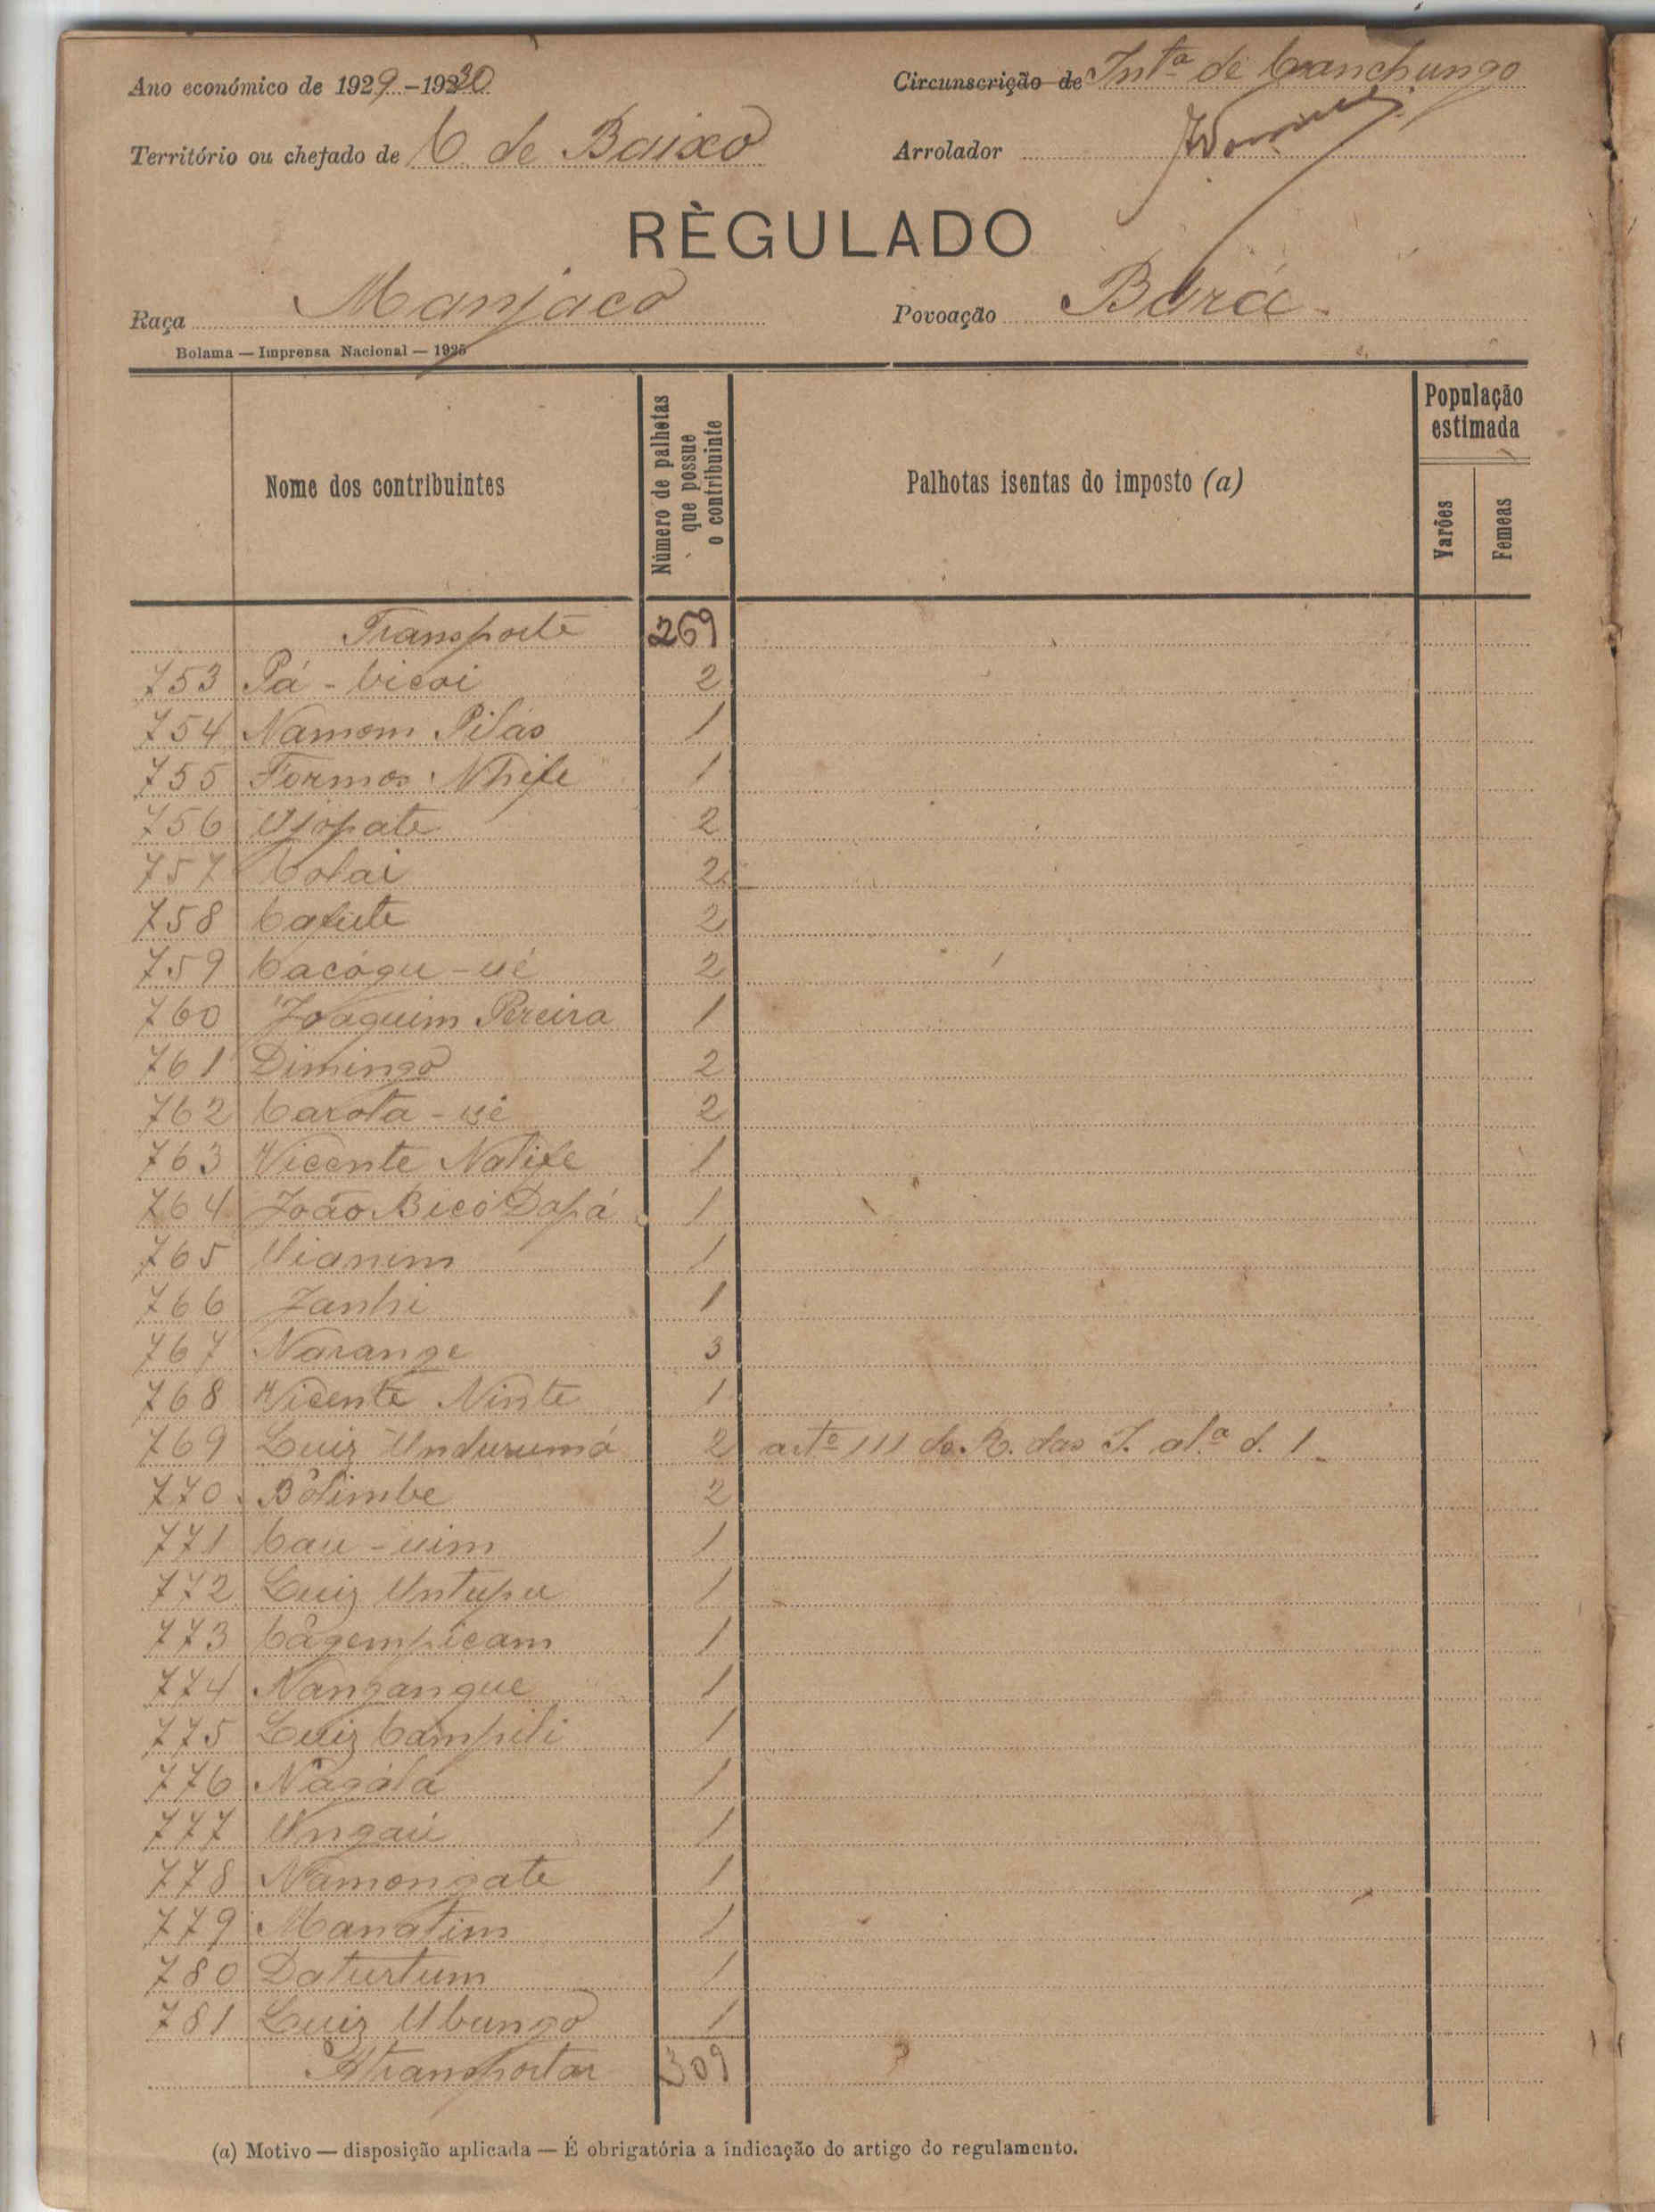 Ano económico de 1929-1930
Circunscrição de Intª de Canchungo
Território ou chefado de C. de Baixo
Arrolador
RÈGULADO
Raça Manjaco
Povoação Bará
Bolama — Imprensa Nacional — 1925
Nome dos contribuintes
Número de palhotas que possue o contribuinte
Palhotas isentas do imposto (a)
População estimada
Varões
Femeas
Transporte 269
753 Pá - bicai 2
754 Namom Pilas 1
755 Formos Nhife 1
756 Ujopate 2
757 Colai 2
758 Cafute 2
759 Cacógu - ué 2
760 Joaquim Pereira 1
761 Dimingo 2
762 Carota - ué 2
763 Vicente Natife 1
764 João Bicó Dapá 1
765 Uianim 1
766 Janhi 1
767 Narange 3
768 Vicente Ninte 1
769 Luiz Undurumó 2 artº 111 do R. das I. al.ª d. 1
770 Bôtimbe 2
771 Cau - uim 1
772 Luiz Untupu 1
773 Cágempicam 1
774 Nangangue 1
775 Luiz Campili 1
776 Nagálá 1
777 Ungaú 1
778 Namongate 1
779 Manatim 1
780 Daturtum 1
781 Luiz Ubungo 1
A transportar 309
(a) Motivo — disposição aplicada — É obrigatória a indicação do artigo do regulamento.